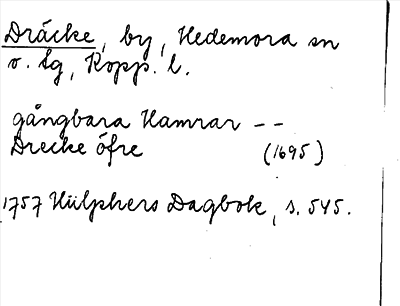 Dräcke, by, Hedemora sn
o. tg, Kopp. l.
gångbara Hamrar --
Drecke öfre (1695)
1757 Hülphers Dagbok, s. 545.